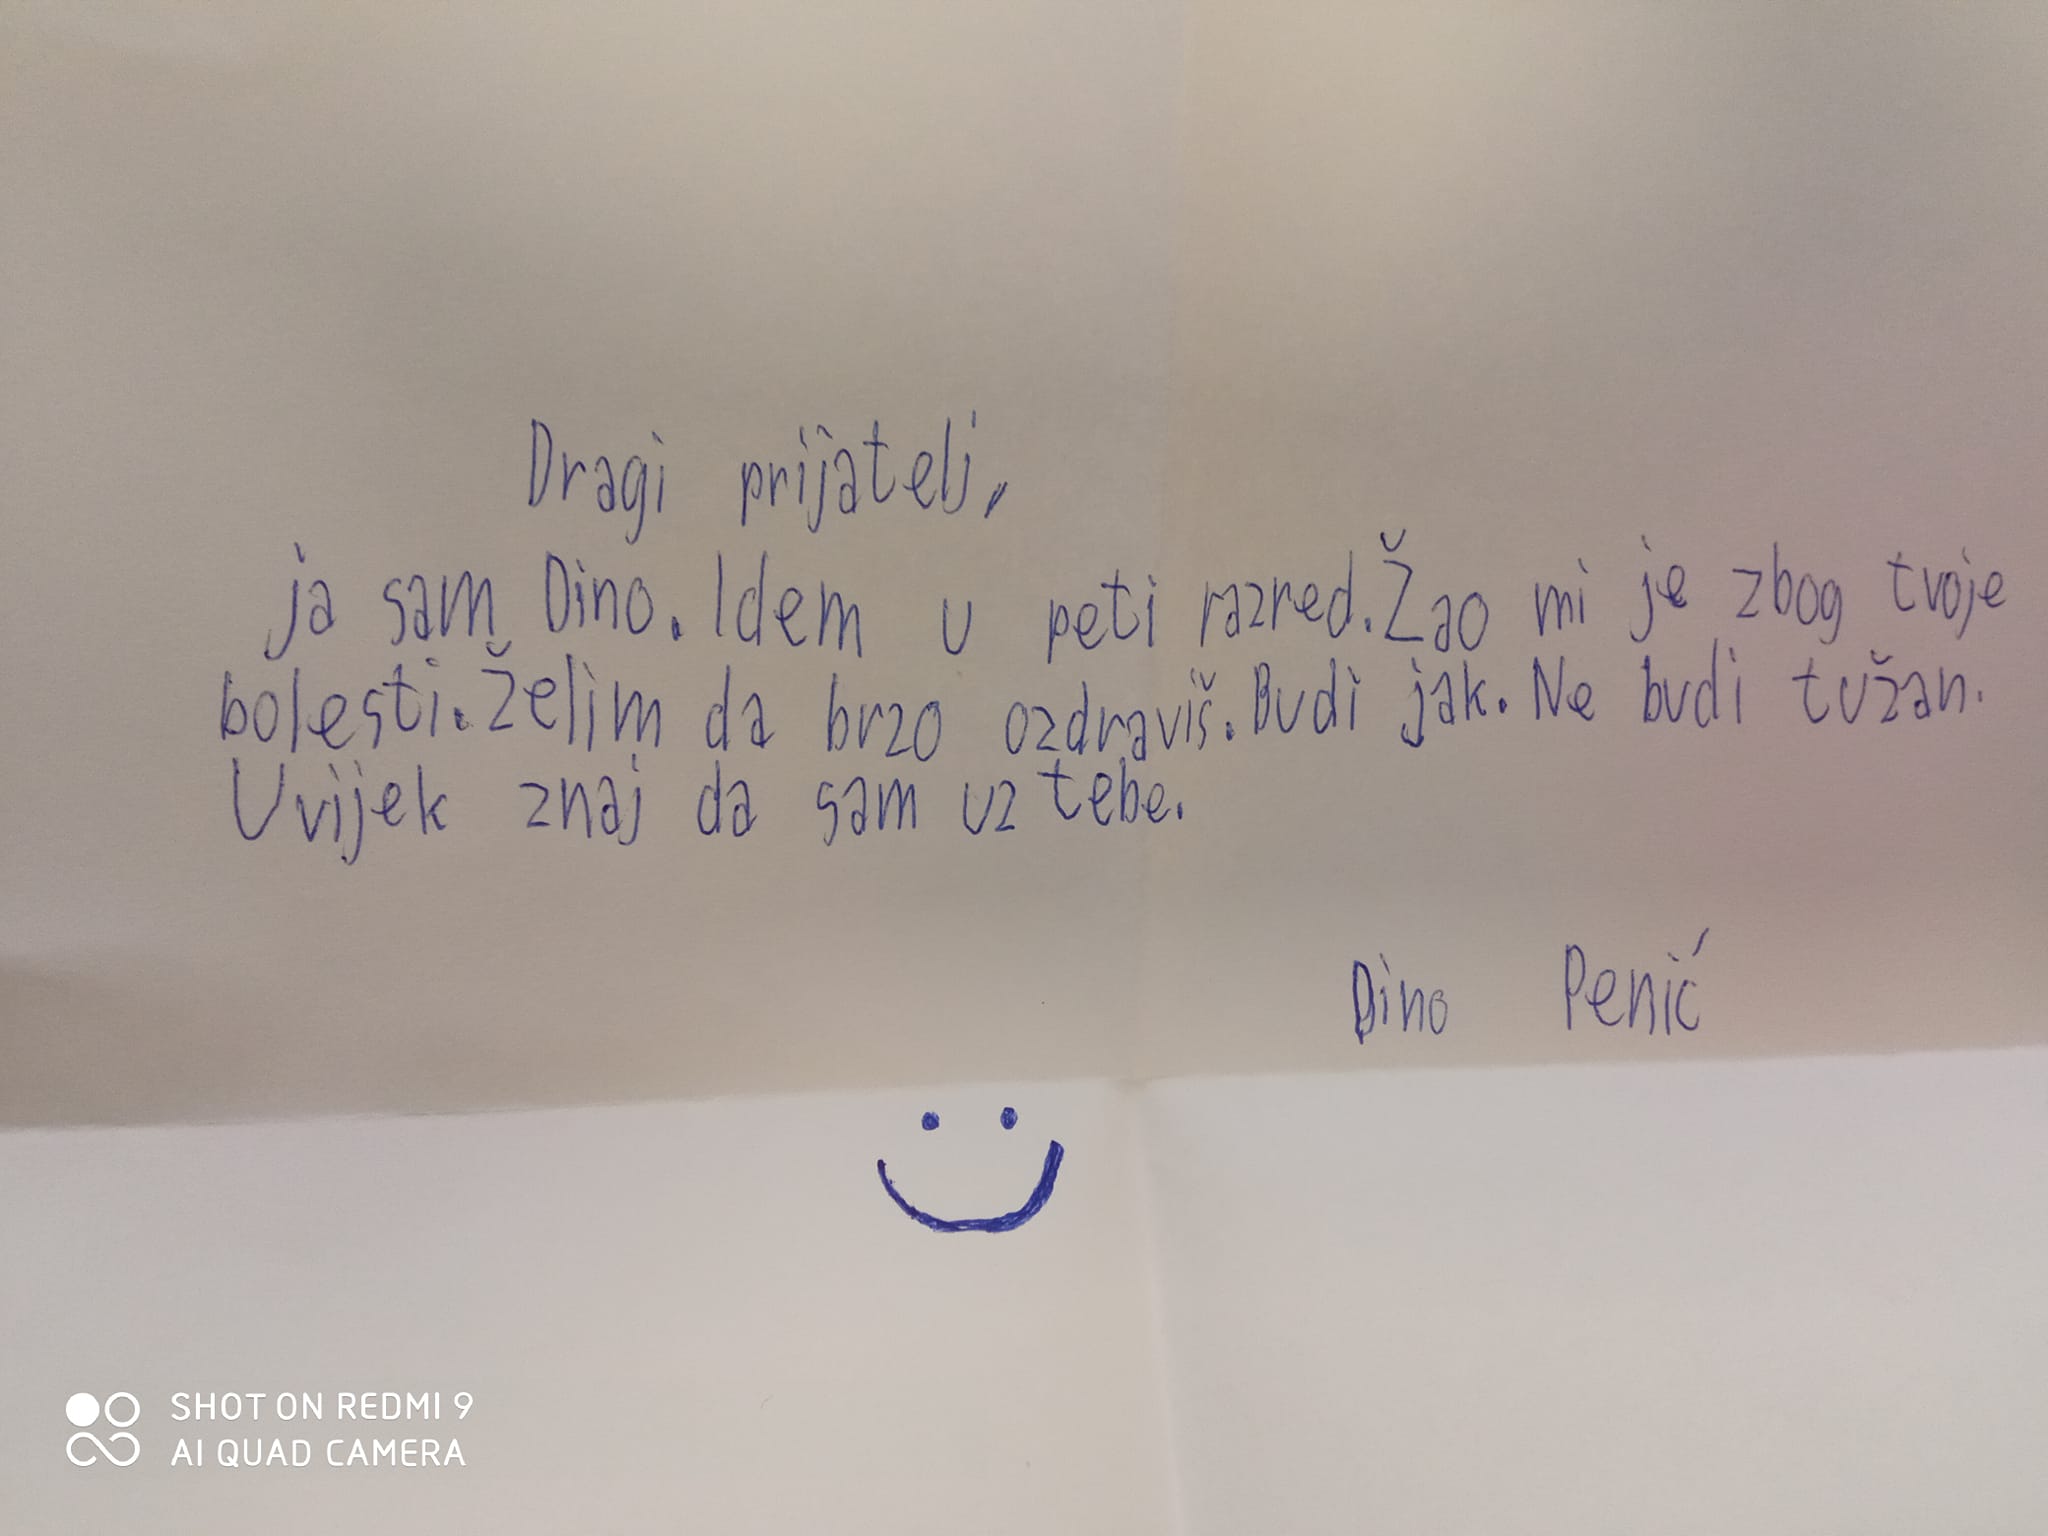 Dragi prijatelj,
ja sam Dino. Idem u peti razred. Žao mi je zbog tvoje
bolesti. Želim da brzo ozdraviš. Budi jak. Ne budi tužan.
Uvijek znaj da sam uz tebe.
Dino Penić
SHOT ON REDMI 9
AI QUAD CAMERA